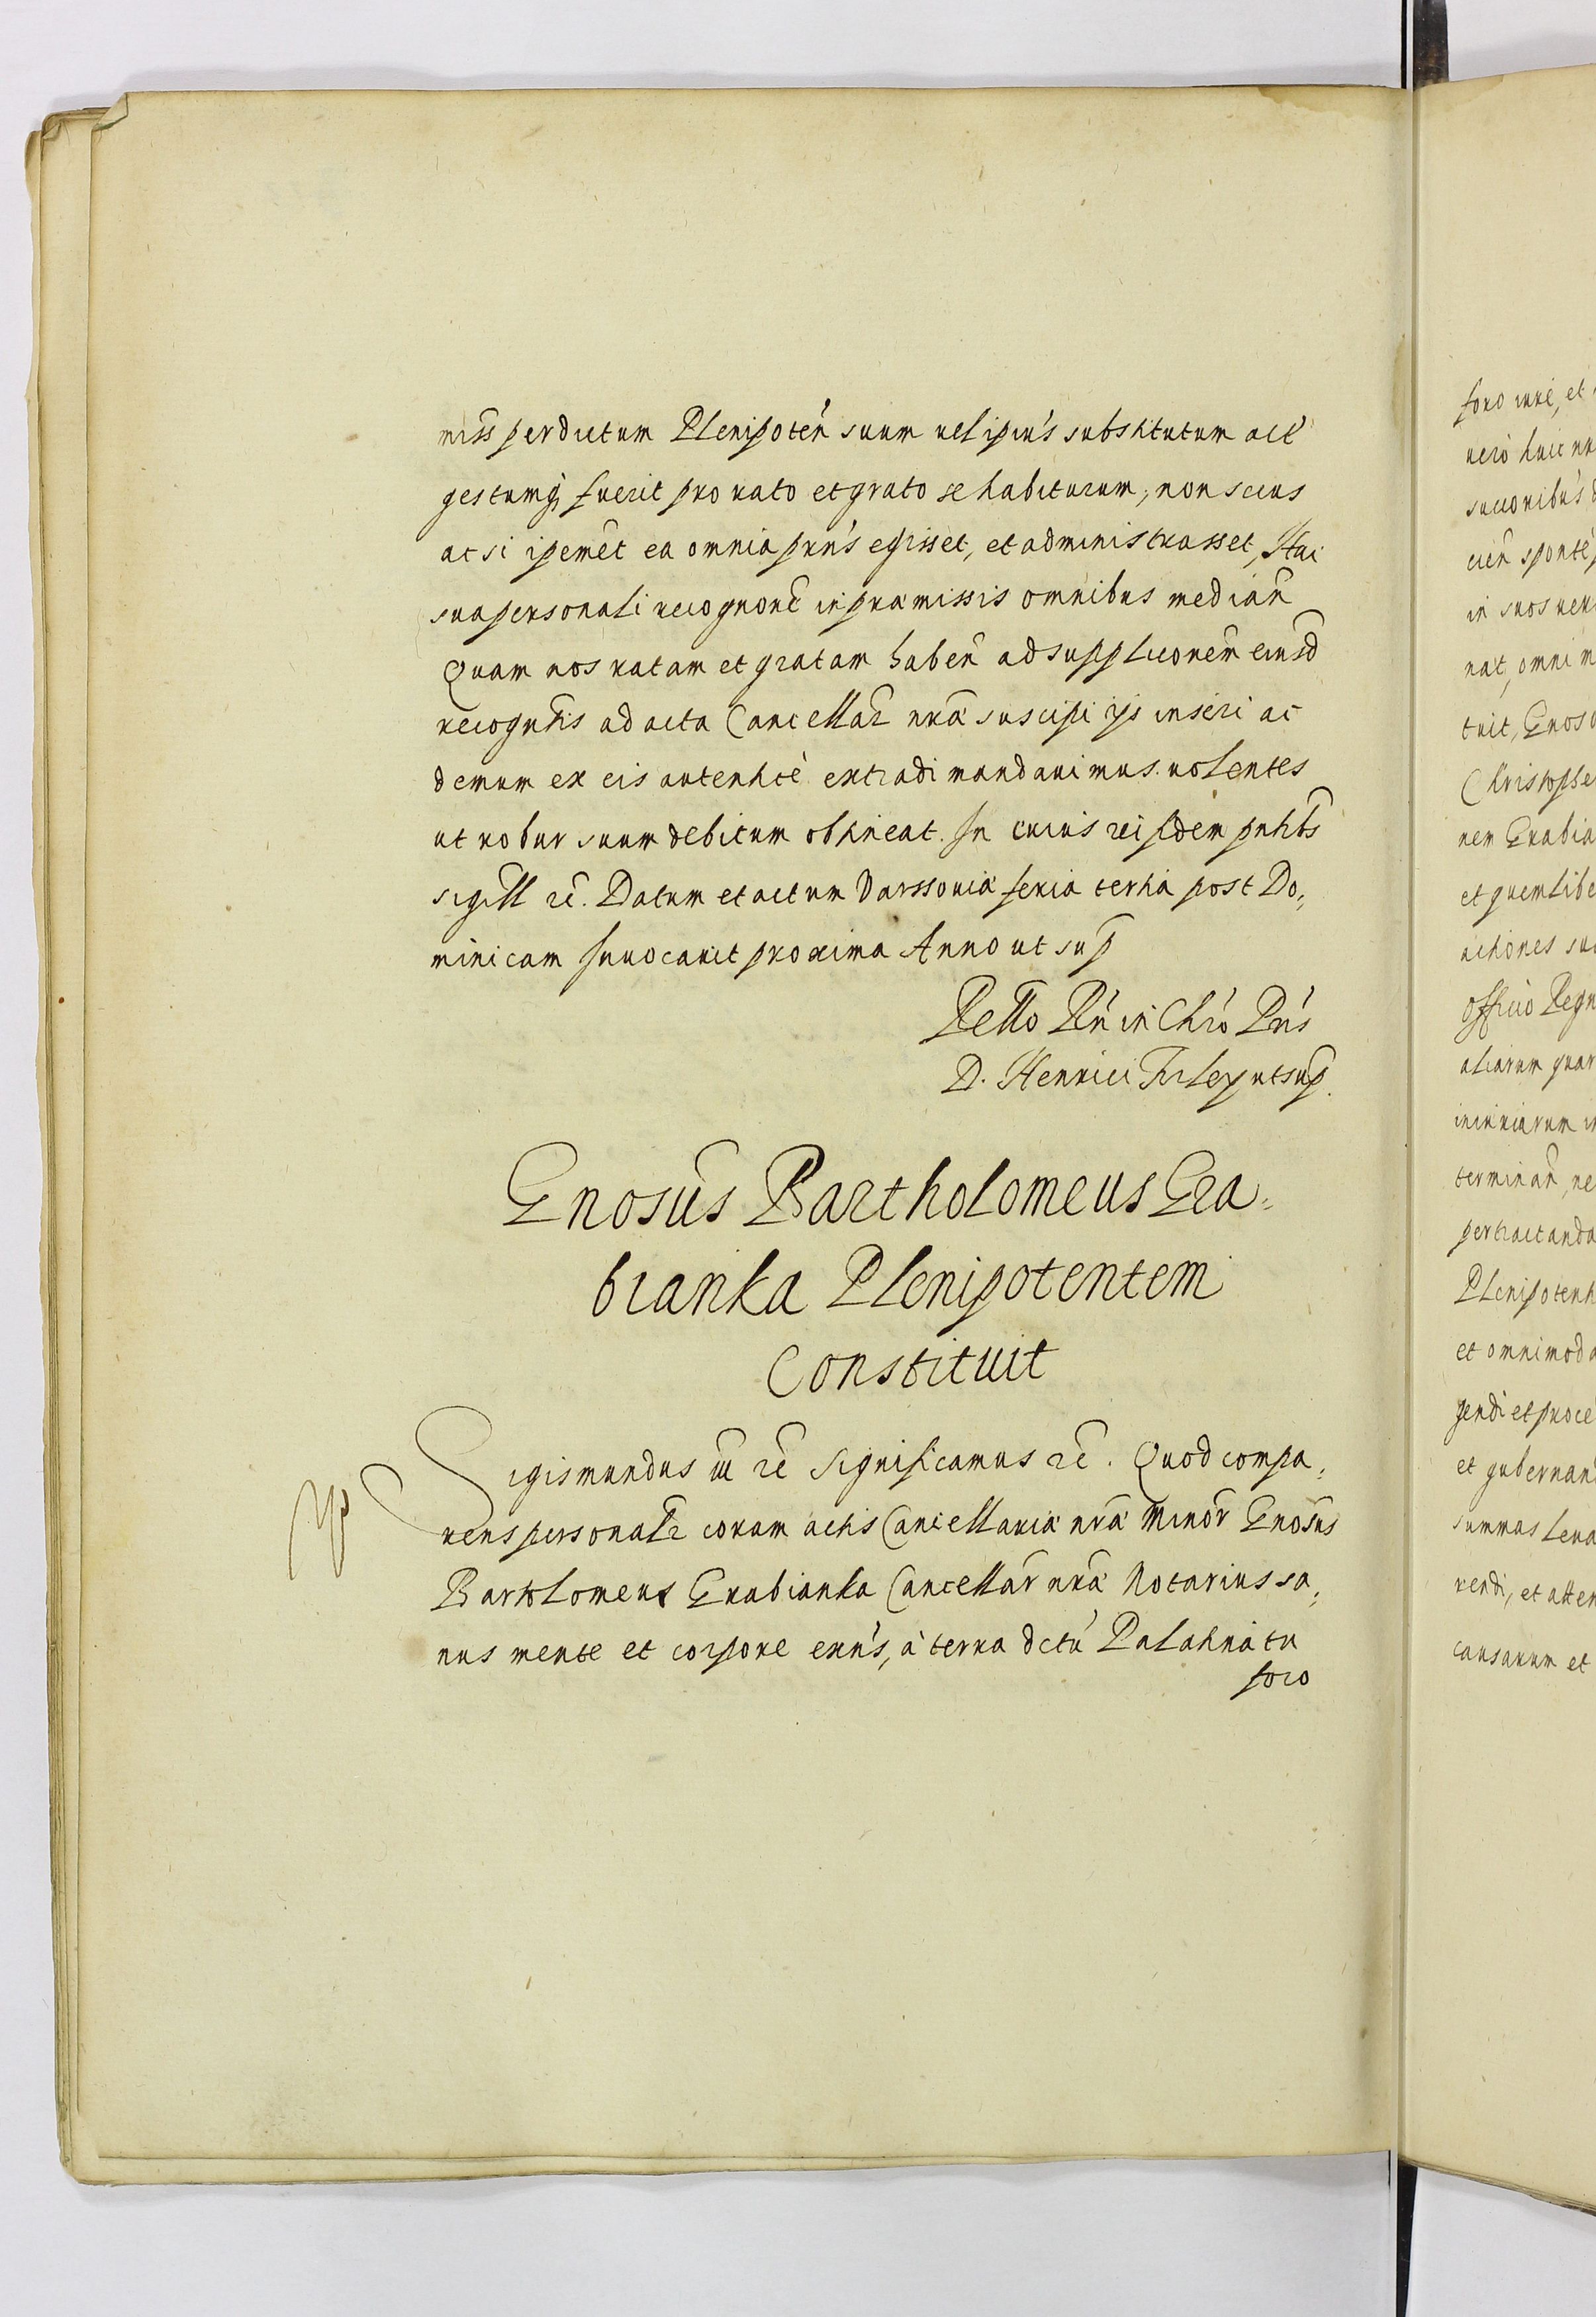 miss per dictum Plenipoten̄ suum vel ipiu's substitutum act̄
gestumq; fuerit pro rato et grato se habiturum, non secus
ac si ipemet ea omnia prn's egisset, et administrasset, Hac
sua personali recognone in præmissis omnibus median̄
Quam nos ratam et gratam haben̄ ad supplicionem eiusd̄
recognn̄tis ad acta Cancellar̄ nr̄æ suscipi ijs inseri ac
demum ex eis autenticè extradi mandauimus. uolentes
ut robur suum debitum obtineat. In cuius rei fidem pntib̄s
sigill̄ et̄c. Datum et actum Varssouiæ feria tertia post Do,
minicam Inuocauit proxima Anno ut sup̄
Rel̄lo Rn̄ in Chr̄o Pr̄is
D. Henrici Firley ut sup̄.
Gnosūs Bartholomeus Gra,
bianka Plenipotentem
Constituit
Sigismundus iii et̄c Significamus et̄c. Quod compa,
rens personalr̄ coram actis Cancellariæ nr̄æ Minor̄ Gnosūs
Bartolomeus Grabianka Cancellar̄ nr̄æ Notarius sa,
nus mente et corpore exn's, à terra dctū Palatinatu
foro
foro iure, et
uerò huic
sponte
in suos
nat, omni
tuit, Gnos
Christophe
nem Grabia
et quemlibe
actiones
Officio Regn
aliarum quar
iniuriarum
terminan̄, ne
pertractanda
Plenipotent
et omnimoda
gendi et proce
et gubernan
summas leua
rendi, et atten
causarum et